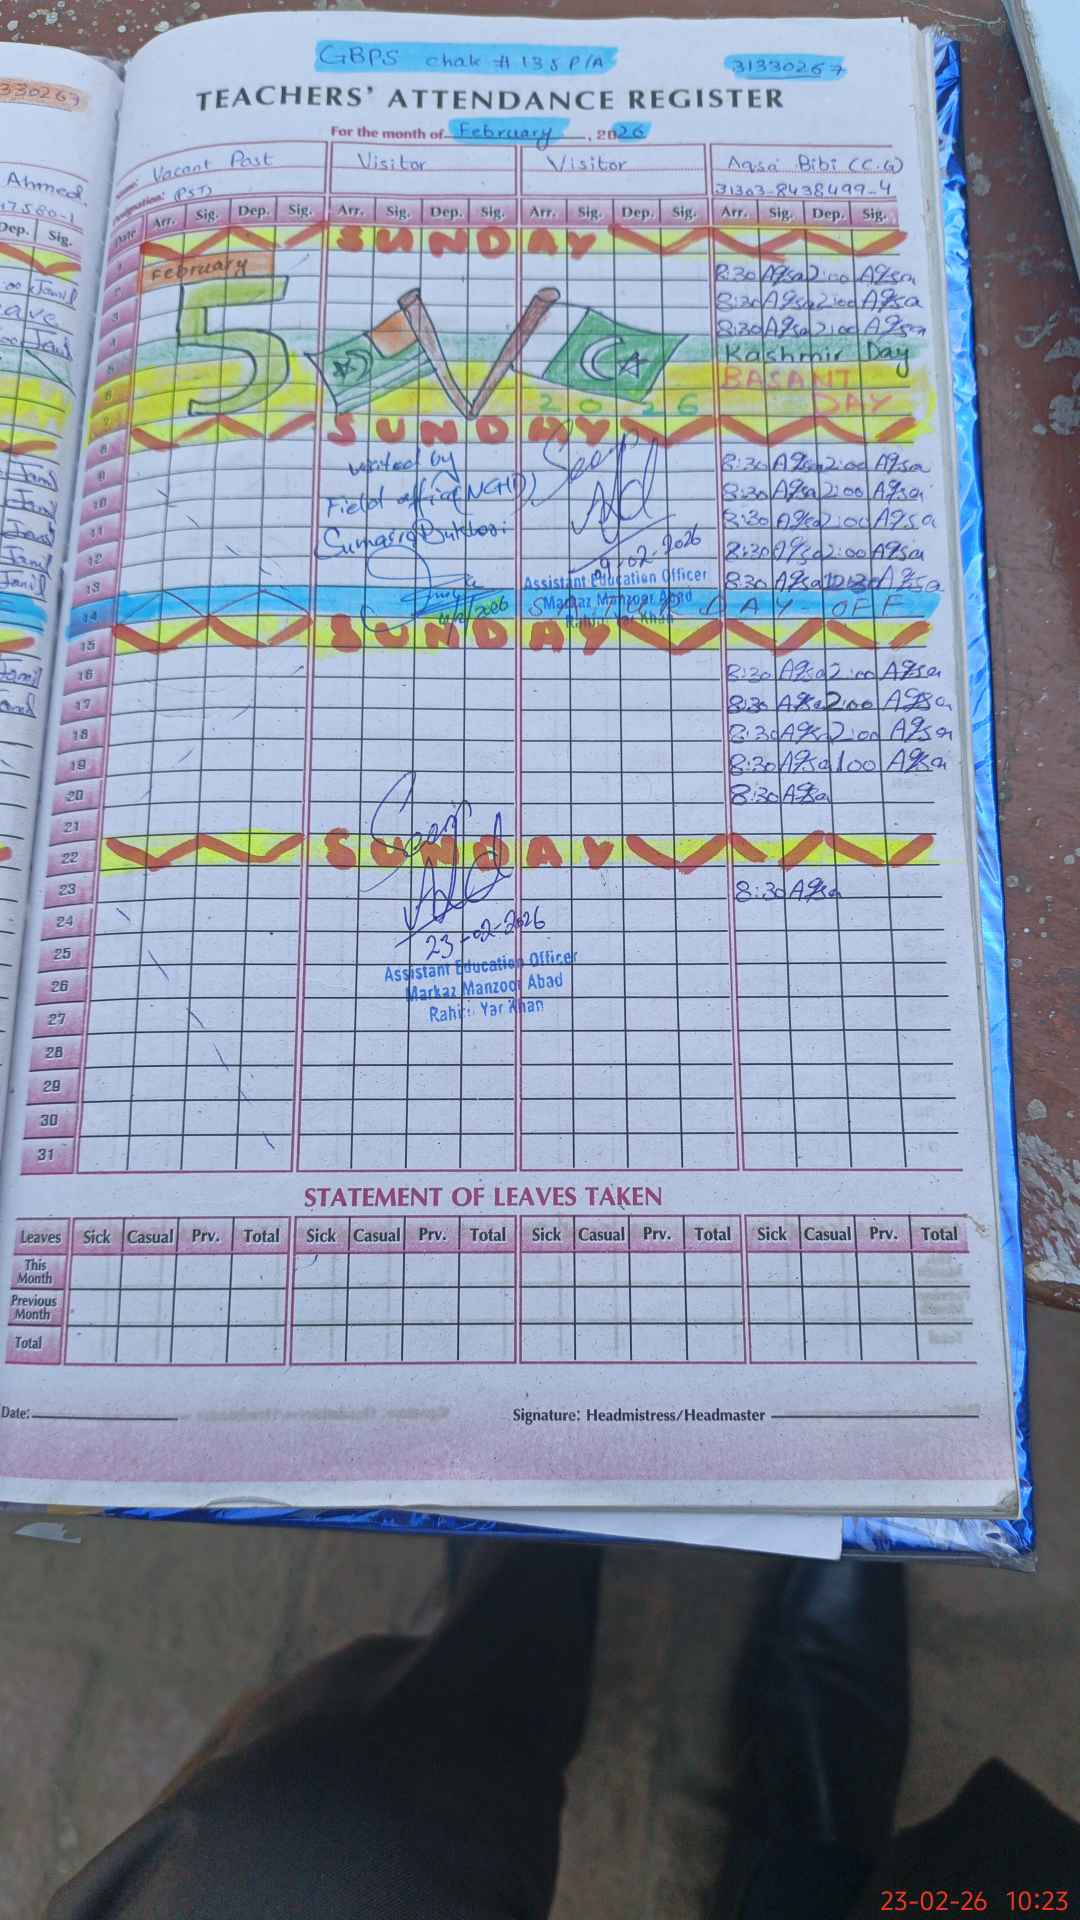 GBPS chak # 138 P/A 31330267
330269
TEACHERS' ATTENDANCE REGISTER
For the month of February, 2026
Ahmed
Name: Vacant Post Visitor Visitor Aqsa Bibi (C.G)
Designation: (PST) 31303-8438499-4
Dep. Sig.
Date Arr. Sig. Dep. Sig. Arr. Sig. Dep. Sig. Arr. Sig. Dep. Sig. Arr. Sig. Dep. Sig.
1 SUNDAY
February
2 8:30 Aqsa 2:00 Aqsa
3 8:30 Aqsa 2:00 Aqsa
4 8:30 Aqsa 2:00 Aqsa
5 Kashmir Day
5
6 BASANT
7 2026 DAY
8 SUNDAY
9 8:30 Aqsa 2:00 Aqsa
10 8:30 Aqsa 2:00 Aqsa
11 8:30 Aqsa 2:00 Aqsa
12 8:30 Aqsa 2:00 Aqsa
13 8:30 Aqsa 12:30 Aqsa
visited by
Field officer (NCHD)
Sumaira Bukhari
Seen
9-02-2026
Assistant Education Officer
Markaz Manzoor Abad
Rahim Yar Khan
14 DAY - OFF
15 SUNDAY
16 8:30 Aqsa 2:00 Aqsa
17 8:30 Aqsa 2:00 Aqsa
18 8:30 Aqsa 2:00 Aqsa
19 8:30 Aqsa 1:00 Aqsa
20 8:30 Aqsa
21
22 SUNDAY
23 8:30 Aqsa
24
25
26
27
28
29
30
31
Seen
23-02-2026
Assistant Education Officer
Markaz Manzoor Abad
Rahim Yar Khan
STATEMENT OF LEAVES TAKEN
Leaves Sick Casual Prv. Total Sick Casual Prv. Total Sick Casual Prv. Total Sick Casual Prv. Total
This Month
Previous Month
Total
Date: Signature: Headmistress/Headmaster
23-02-26 10:23